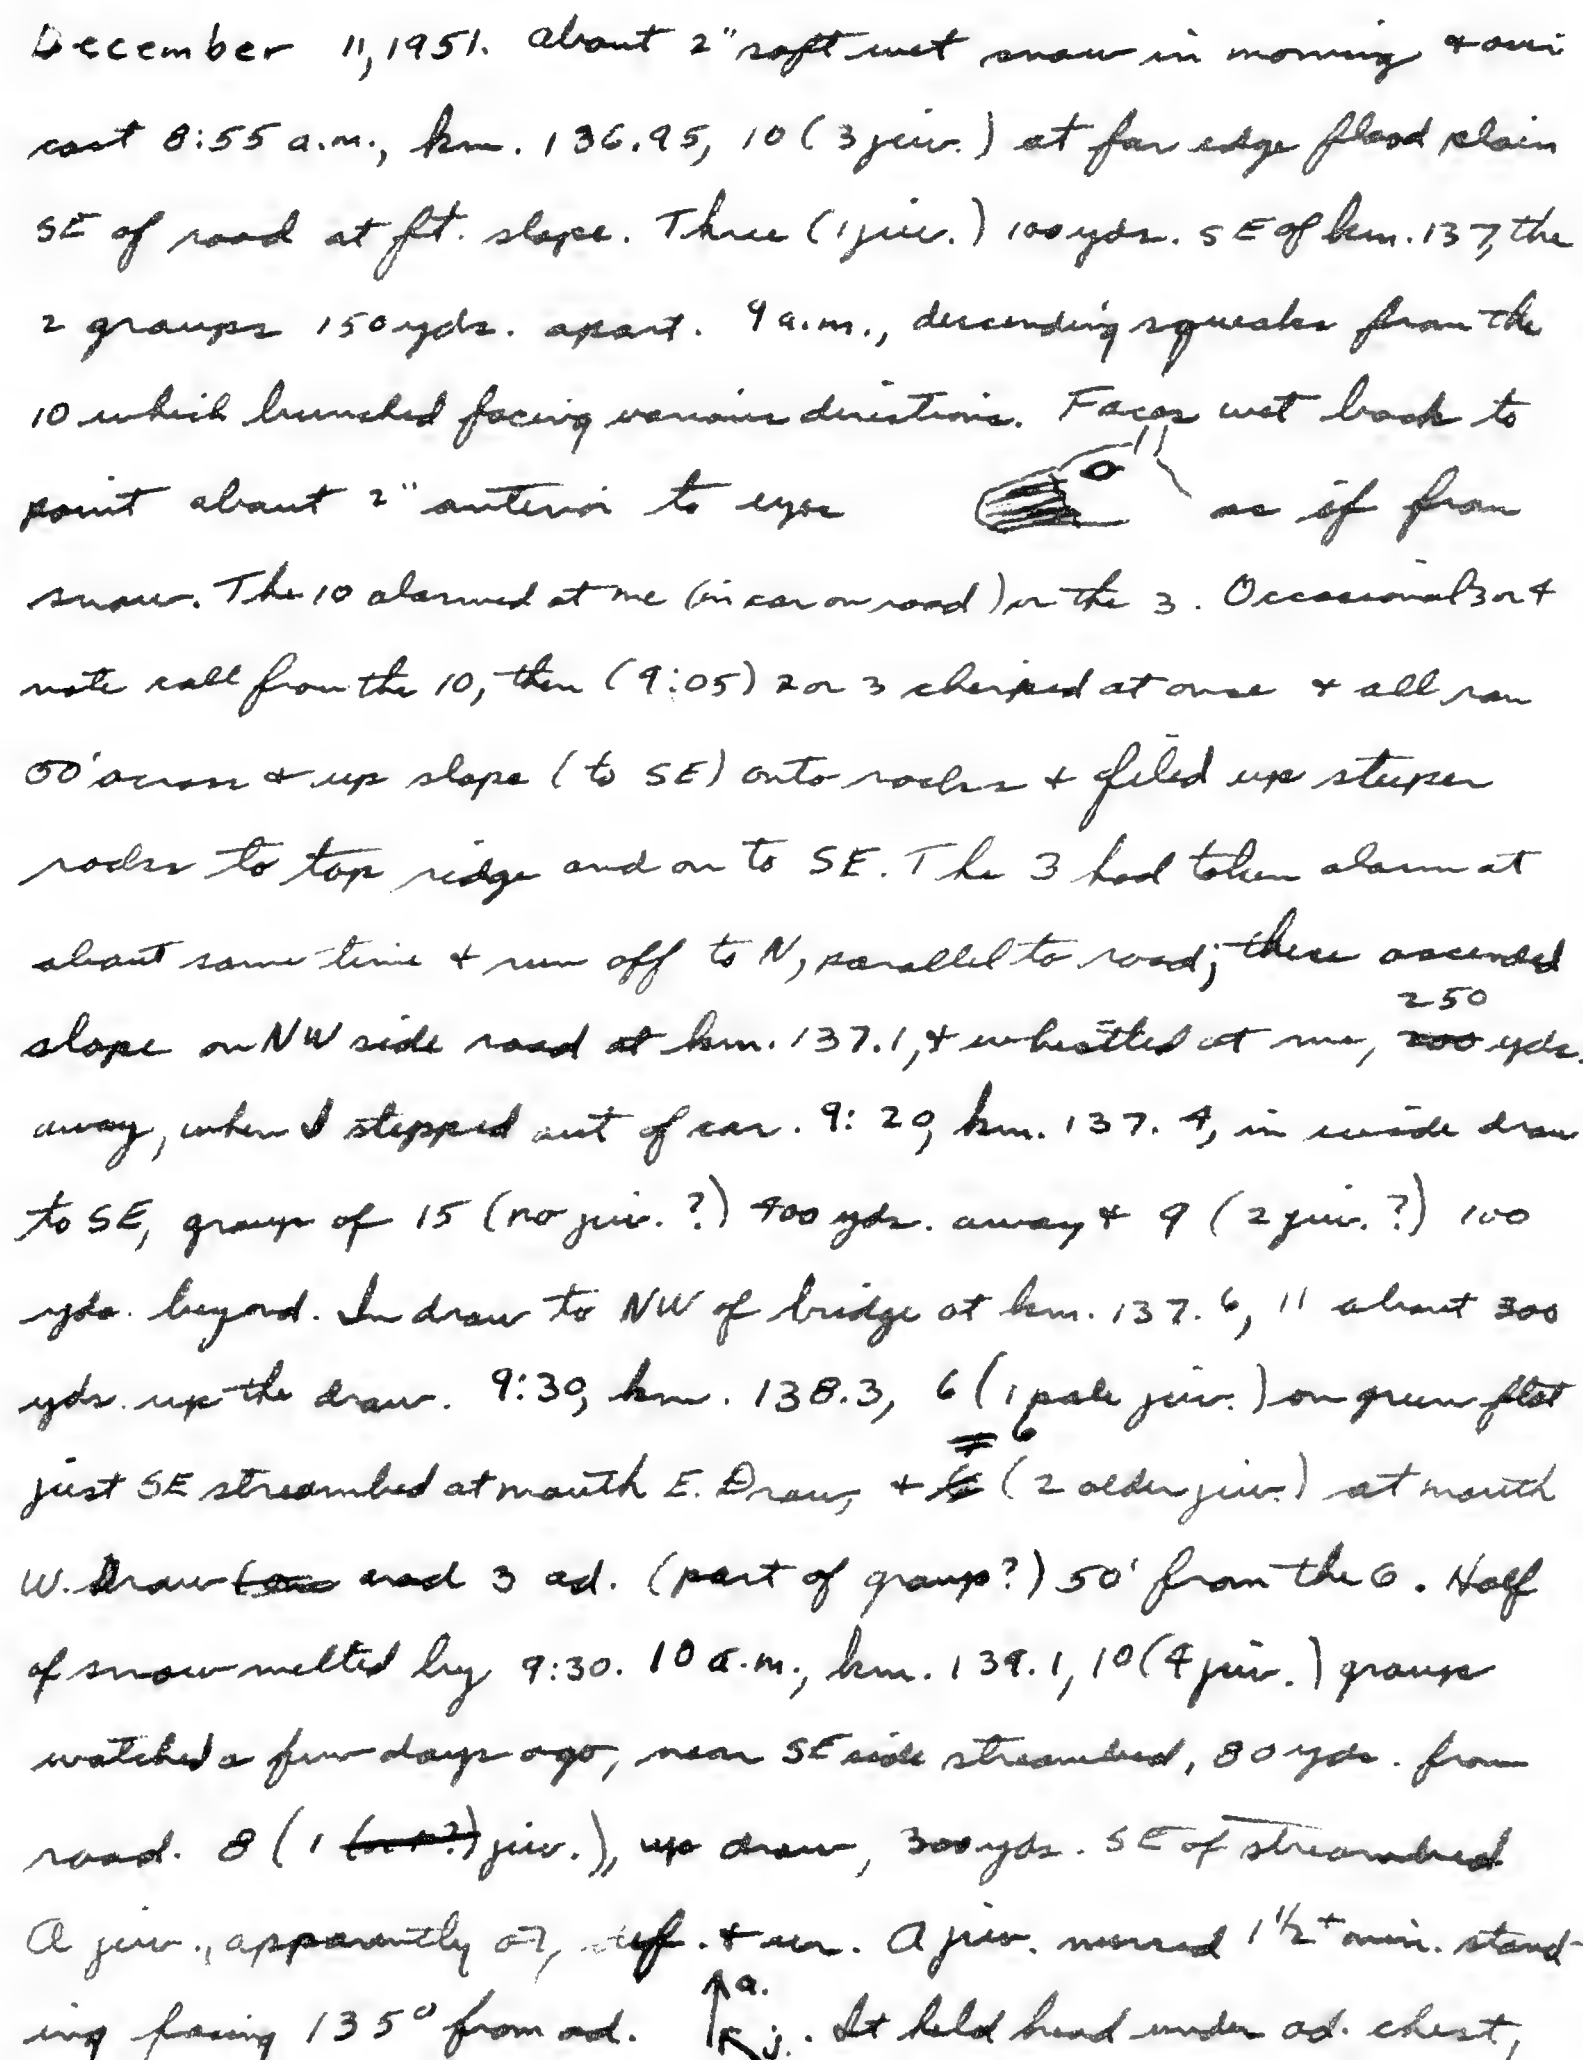 December 11, 1951. About 2" soft wet snow in morning & over
cast 8:55 a.m., km. 136.95, 10 (3 juv.) at far edge flood plain
SE of road at ft. slope. Three (1 juv.) 100 yds. SE of km. 137, the
2 groups 150 yds. apart. 9 a.m., descending squeaks from the
10 which bunched facing various directions. Faces wet back to
point about 2" anterior to eyes as if from
snow. The 10 alarmed at me (in car on road) or the 3. Occasional 3 or 4
note call from the 10, then (9:05) 2 or 3 chirped at once & all ran
50' across & up slope (to SE) onto rocks & filed up steeper
rocks to top ridge and on to SE. The 3 had taken alarm at
about same time & run off to N, parallel to road; these ascended
slope on NW side road at km. 137.1, & whistled at me, 250 yds.
away, when I stepped out of car. 9:20, km. 137.4, in wide draw
to SE, group of 15 (no juv.?) 400 yds. away & 9 (2 juv.?) 100
yds. beyond. In draw to NW of bridge at km. 137.6, 11 about 300
yds. up the draw. 9:30, km. 138.3, 6 (1 pale juv.) on green flat
just SE streambed at mouth E. Draw, & 6 (2 older juv.) at mouth
W. Draw and 3 ad. (part of group?) 50' from the 6. Half
of snow melted by 9:30. 10 a.m., km. 139.1, 10 (4 juv.) group
watched a few days ago, near SE side streambed, 80 yds. from
road. 8 (1 juv.), up draw, 300 yds. SE of streambed
A juv., apparently def. & ur. A juv. nursed 1 1/2+ min. stand-
ing facing 135° from ad. a. j. It held head under ad. chest,